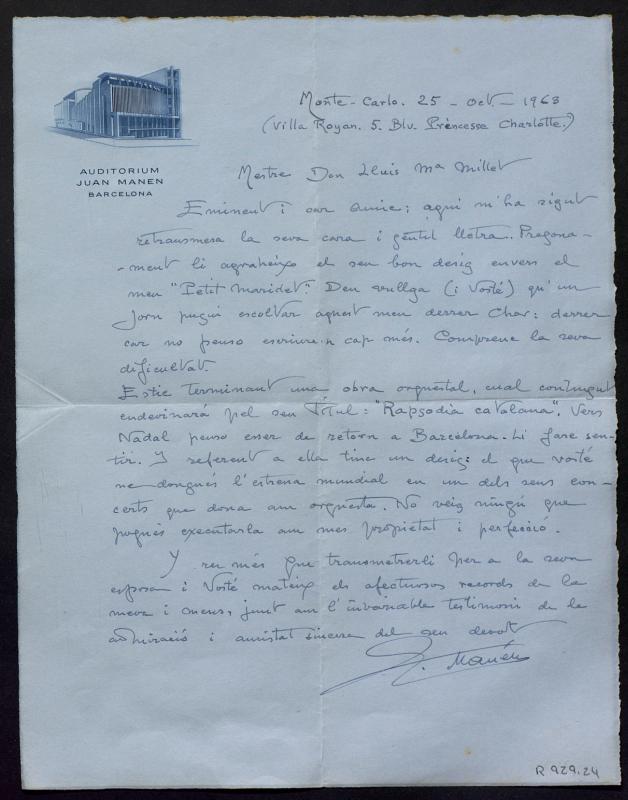 AUDITORIUM
JUAN MANEN
BARCELONA
Monte-Carlo. 25 - Oct. - 1963
(Villa Royan. 5. Blv. Princesse Charlotte.)
Mestre Don Lluis Mª Millet
Eminent i car amic; aqui m'ha sigut
retransmesa la seva cara i gentil lletra. Pregona-
-ment li agraheixo el seu bon desig envers el
meu "Petit Maridet". Deu vullga (i Vosté) qu'un
jorn pugui escoltar aquest meu derrer Chor: derrer
car no penso escriure'n cap més. Comprenc la seva
dificultat.
Estic terminant una obra orquestal, cual contingut
endevinará pel seu Titul: "Rapsodia catalana". Vers
Nadal penso esser de retorn a Barcelona. Li faré sen-
tir. Y referent a ella tinc un desig: el que vosté
ne dongués l'estrena mundial en un dels seus con-
certs que dona am orquesta. No veig ningú que
pogués executarla am mes propietat i perfecció.
Y res més que transmetrerli per a la seva
esposa i Vosté mateix els afectuosos records de la
meva i meus, junt am l'invariable testimoni de la
admiració i amistat sincera del seu devot
J. Manén
R 929.24